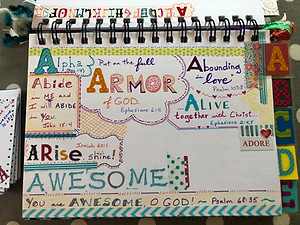 Alpha
Put on the full
ARMOR
of GOD.
Ephesians 6:11
Abounding
in love
Psalm 103:8
Abide
in ME and
I will ABIDE
in YOU.
John 15:4
ALIVE
together with Christ...
Ephesians 2:4-5
ARise
Isaiah 60:1
shine!
I ♥
ADORE
AWESOME
You are AWESOME, O GOD! ~ Psalm 68:35 ~
A
B
C
D
E